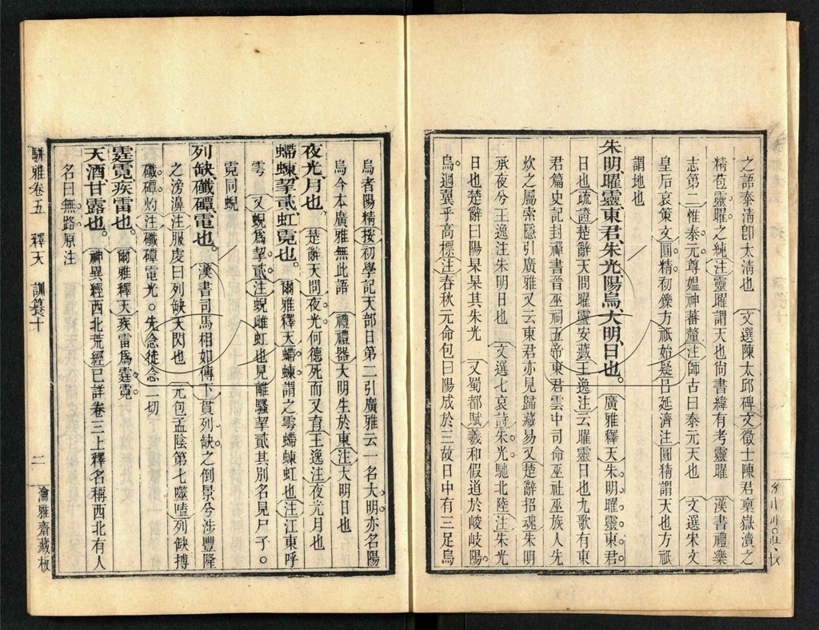 之語泰清卽太清也　文選陳太邱碑文徵士陳君稟嶽瀆之
精包靈曜之純注靈曜謂天也尙書緯有考靈曜　漢書禮樂
志第二惟泰元尊媼神蕃釐注師古曰泰元天也　文選宋文
皇后哀策文圓精初鑠方祇始凝呂延濟注圓精謂天也方祇
謂地也
朱明曜靈東君朱光陽烏大明日也。廣雅釋天朱明曜靈東君
日也疏證楚辭天問曜靈安藏王逸注云曜靈日也九歌有東
君篇史記封禪書晉巫祠五帝東君雲中司命巫社巫族人先
炊之屬索隱引廣雅又云東君亦見歸藏易又楚辭招魂朱明
承夜兮王逸注朱明日也　文選七哀詩朱光馳北陸注朱光
日也楚辭曰陽杲杲其朱光　又蜀都賦羲和假道於峻岐陽
烏迴翼乎高標注春秋元命包曰陽成於三故日中有三足烏
烏者陽精按初學記天部日第二引廣雅云一名大明亦名陽
烏今本廣雅無此語　禮禮器大明生於東注大明日也
夜光月也。楚辭天問夜光何德死而又育王逸注夜光月也
螮蝀挈貳虹霓也。爾雅釋天螮蝀謂之雩螮蝀虹也注江東呼
雩　又蜺爲挈貳注蜺雌虹也見離騷挈貳其別名見尸子。
霓同蜺
列缺礮磹電也。漢書司馬相如傳下貫列缺之倒景兮涉豐隆
之滂濞注服虔曰列缺天閃也　元包孟陰第七噬嗑列缺搏
注礮磹電光。先念徒念二切
霆霓疾雷也。爾雅釋天疾雷爲霆霓
天酒甘露也。神異經西北荒經已詳卷三上釋名稱西北有人
名曰無路原注
駢雅卷五　釋天　訓纂十　二　瀹雅齋藏板